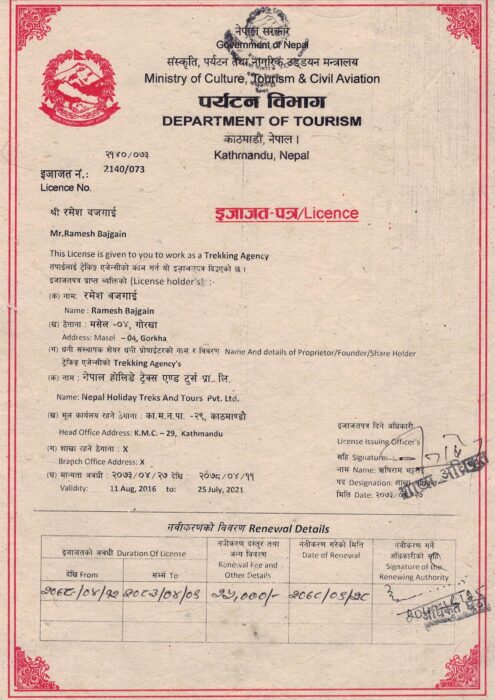 नेपाल सरकार
Government of Nepal
संस्कृति, पर्यटन तथा नागरिक उड्डयन मन्त्रालय
Ministry of Culture, Tourism & Civil Aviation
पर्यटन विभाग
DEPARTMENT OF TOURISM
काठमाडौं, नेपाल ।
Kathmandu, Nepal
२१४०/०७३
इजाजत नं.: 2140/073
Licence No.
श्री रमेश बजगाई
इजाजत-पत्र/Licence
Mr.Ramesh Bajgain
This License is given to you to work as a Trekking Agency
तपाईलाई ट्रेकिङ्ग एजेन्सीको काम गर्न यो इजाजतपत्र दिइएको छ ।
इजाजतपत्र प्राप्त व्यक्तिको (License holder's) :-
(क) नाम: रमेश बजगाई
Name : Ramesh Bajgain
(ख) ठेगाना : मसेल -०४, गोरखा
Address: Masel – 04, Gorkha
(ग) धनी संस्थापक शेयर धनी प्रोपाईटरको नाम र विवरण Name And details of Proprietor/Founder/Share Holder
ट्रेकिङ्ग एजेन्सीको Trekking Agency's
(क) नाम : नेपाल होलिडे ट्रेक्स एण्ड टुर्स प्रा. लि.
Name: Nepal Holiday Treks And Tours Pvt. Ltd.
(ख) मूल कार्यलय रहने ठेगाना : का.म.न.पा. -२९, काठमाण्डौ
Head Office Address: K.M.C – 29, Kathmandu
(ग) शाखा रहने ठेगाना : X
Branch Office Address: X
(घ) मान्यता अबधी : २०७३/०४/२७ देखि : २०७८/०४/११
Validity: 11 Aug, 2016 to: 25 July, 2021
इजाजतपत्र दिने अधिकारी
License Issuing Officer's
सहि Signature:
नाम Name: ऋषिराम
पद Designation: शाखा अधिकृत
मिति Date: २०७३/
नवीकरणको विवरण Renewal Details
इजाजतको अबधी Duration Of License
देखि From
सम्म To
नवीकरण दस्तुर तथा अन्य विवरण Renewal Fee and Other Details
नवीकरण गरेको मिति Date of Renewal
नवीकरण गर्ने अधिकारीको सहि Signature of the Renewing Authority